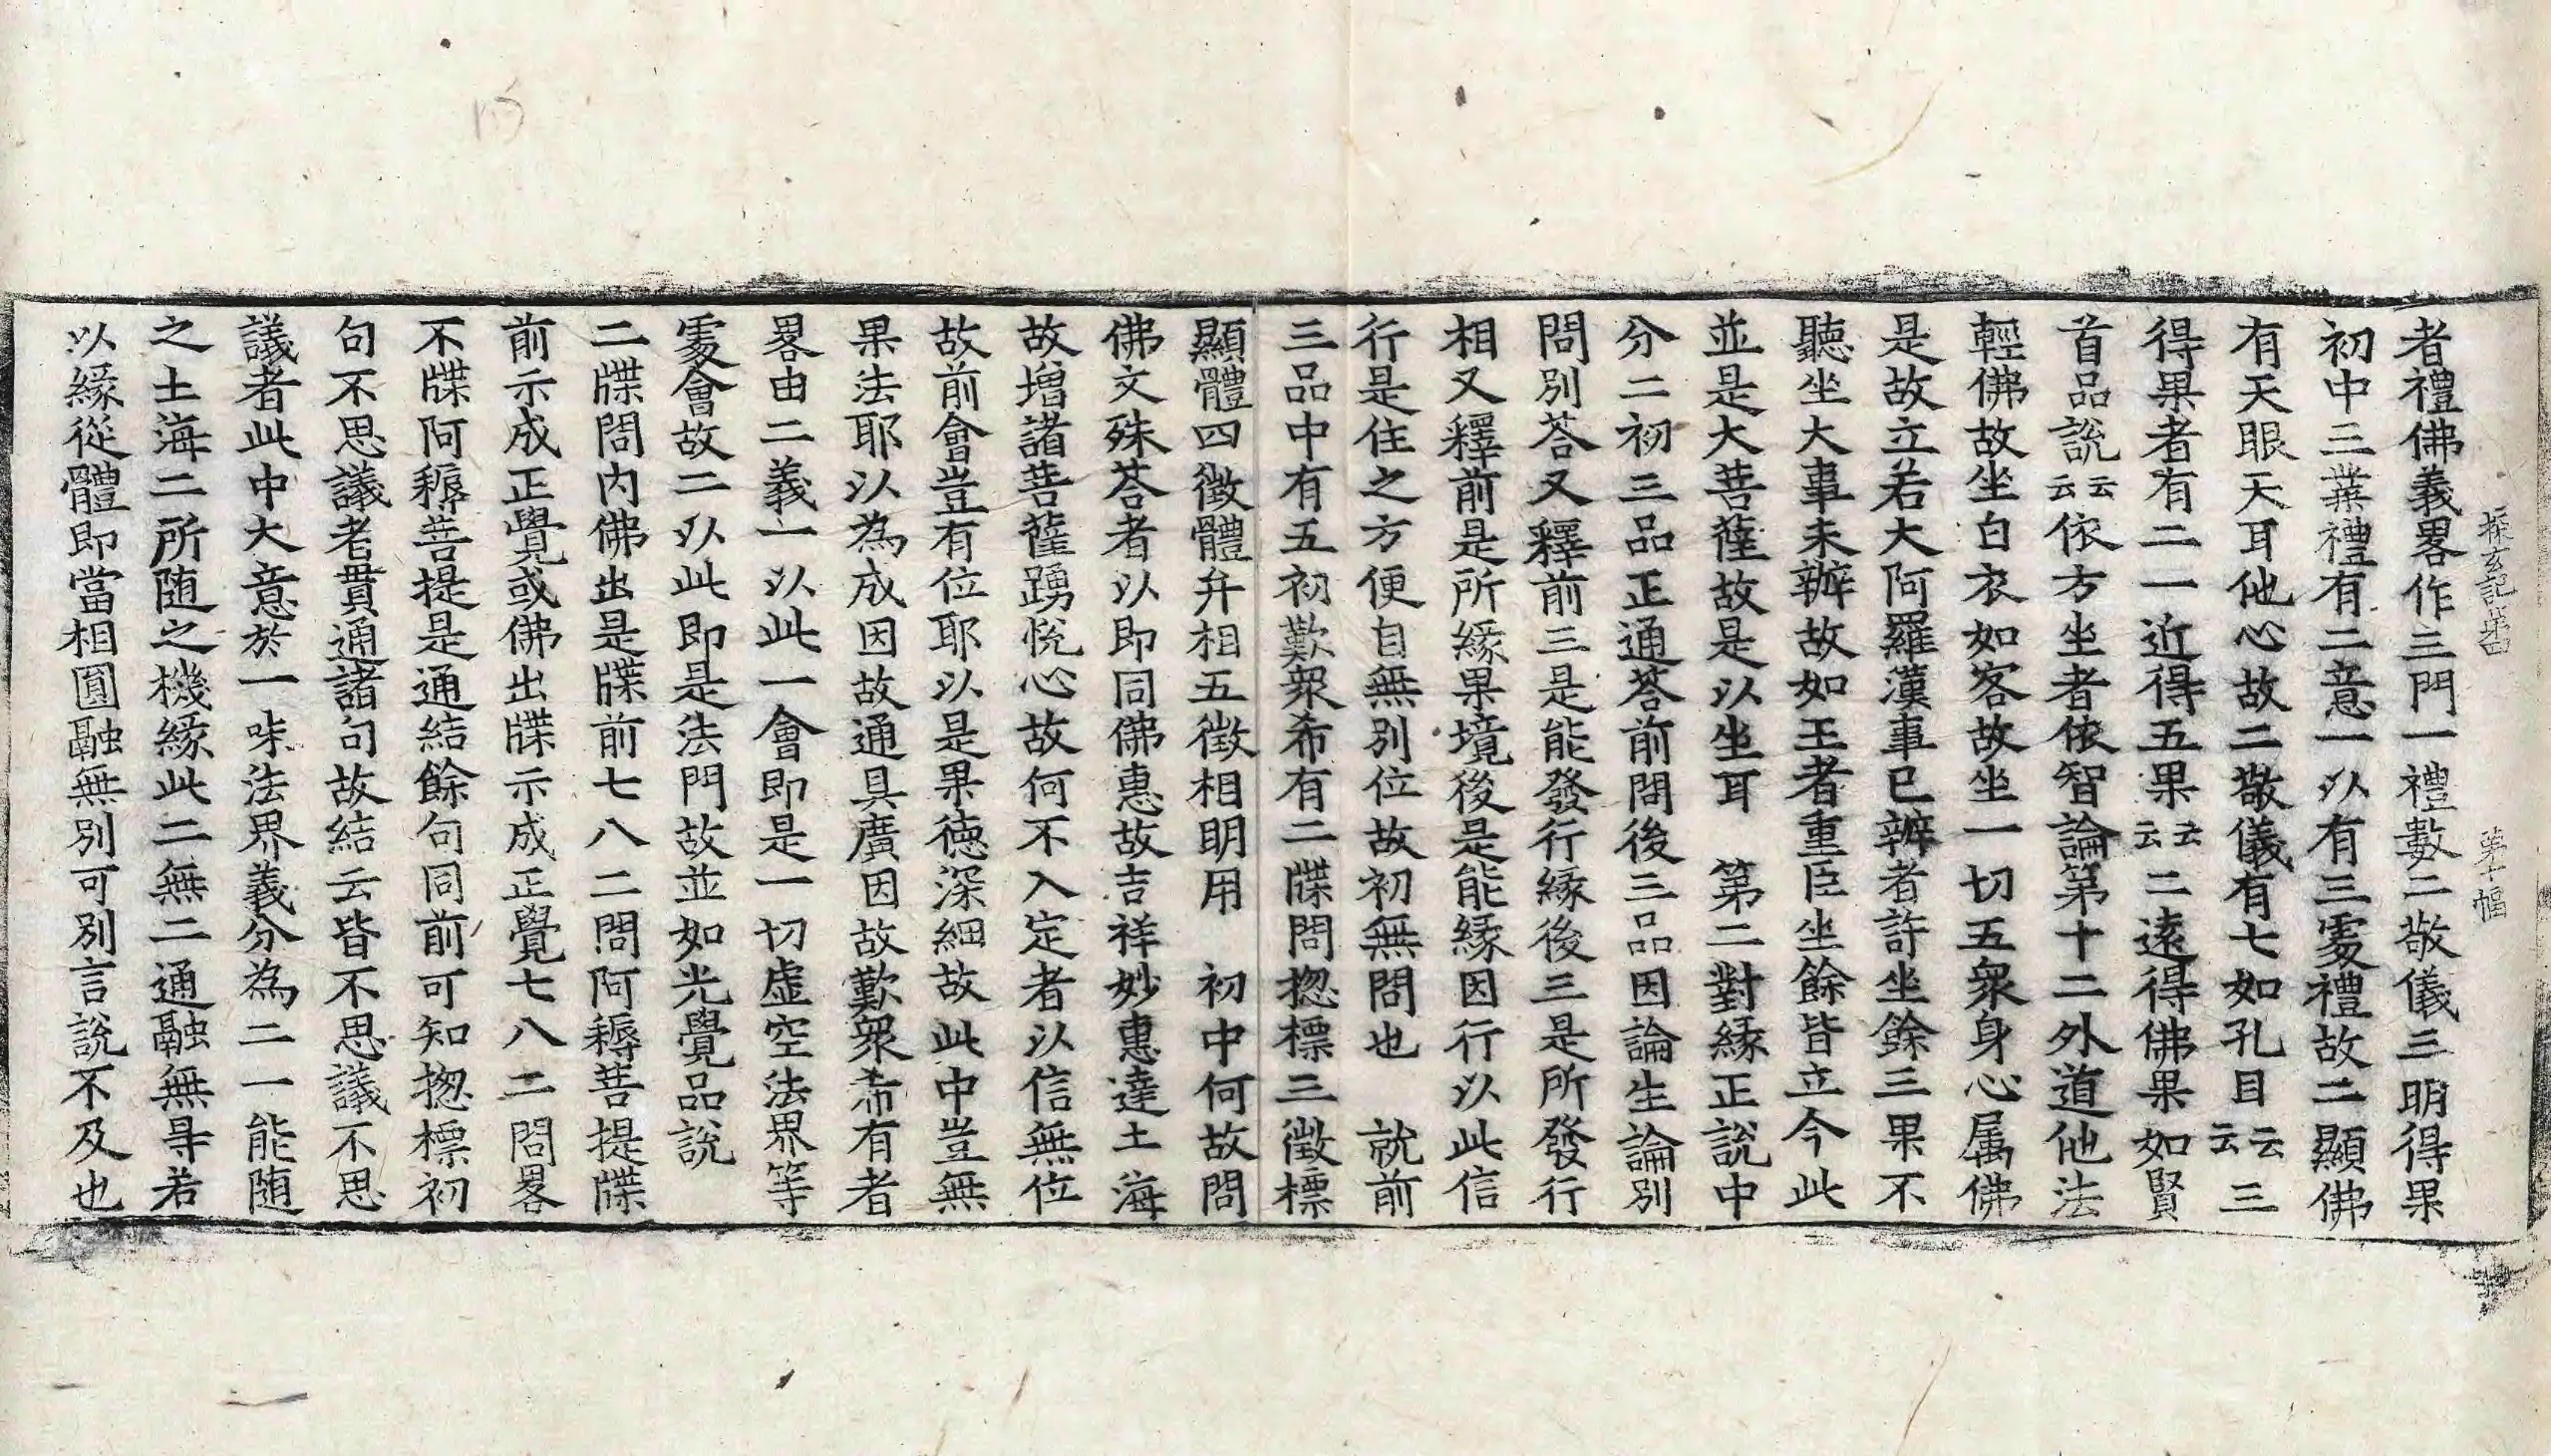 探玄記第四　第十幅
者禮佛義畧作三門一禮數二敬儀三明得果
初中三業禮有二意一以有三處禮故二顯佛
有天眼天耳他心故二敬儀有七如孔目云云三
得果者有二一近得五果云云二遠得佛果如賢
首品說云云依方坐者依智論第十二外道他法
輕佛故坐白衣如客故坐一切五衆身心属佛
是故立若大阿羅漢事已辨者許坐餘三果不
聽坐大事未辦故如王者重臣坐餘皆立今此
並是大菩薩故是以坐耳　第二對緣正說中
分二初三品正通荅前問後三品因論生論別
問別荅又釋前三是能發行緣後三是所發行
相又釋前是所緣果境後是能緣因行以此信
行是住之方便自無別位故初無問也　就前
三品中有五初歎衆希有二牒問揔標三徵標
顯體四徵體弁相五徵相明用　初中何故問
佛文殊荅者以即同佛惠故吉祥妙惠達土海
故增諸菩薩踴悅心故何不入定者以信無位
故前會豈有位耶以是果德深細故此中豈無
果法耶以為成因故通具廣因故歎衆希有者
畧由二義一以此一會即是一切虛空法界等
處會故二以此即是法門故並如光覺品說
二牒問內佛出是牒前七八二問阿耨菩提牒
前示成正覺或佛出牒示成正覺七八二問畧
不牒阿耨菩提是通結餘句同前可知揔標初
句不思議者貫通諸句故結云皆不思議不思
議者此中大意於一味法界義分為二一能随
之土海二所随之機緣此二無二通融無㝵若
以緣從體即當相圓融無別可別言說不及也